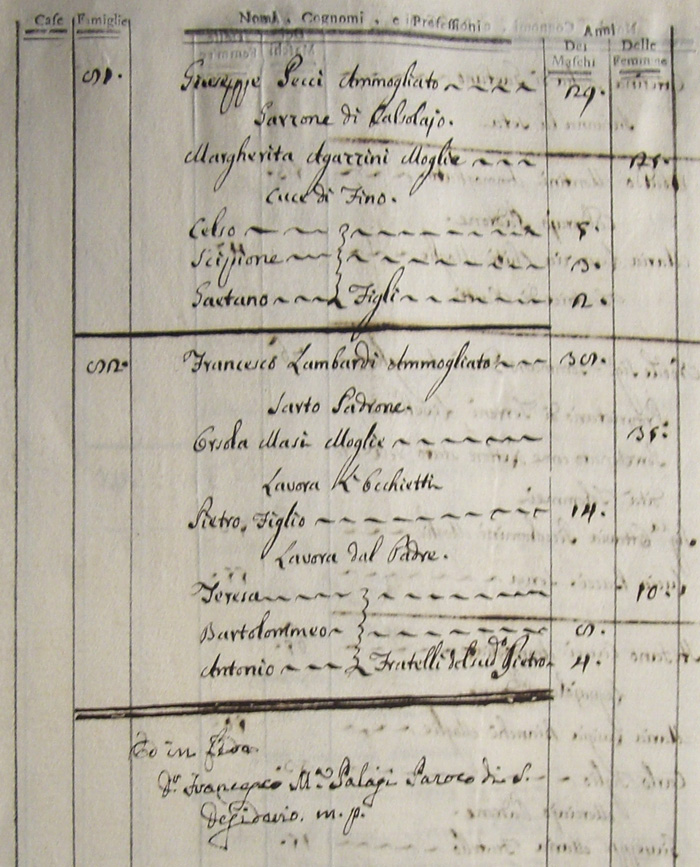 Case Famiglie Nomi, Cognomi, e Professioni Anni
Dei Maschi Delle Femmine
Giuseppe Pecci Ammogliato 29.
Garzone di Calsolajo.
Margherita Agazzini Moglie
Cuce di Fino.
Celso 5.
Scipione 3.
Gaetano Figli 2.
Francesco Lambardi Ammogliato
Sarto Padrone.
Orsola Masi Moglie 35.
Lavora L'Occhietti
Pietro, Figlio 14.
Lavora dal Padre.
Teresa 10.
Bartolommeo
Antonio Fratelli del sud.o Pietro 4.
Io in fede
Dr. Francesco Ma. Palagi Paroco di S.
Desiderio. m. p.